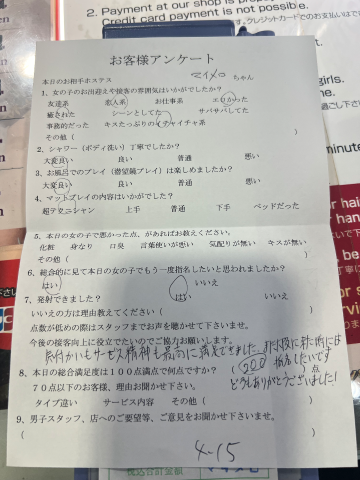 2. Payment at our shop is prep
Credit card payment is not possible.
お客様アンケート
本日のお相手ホステス ちゃん
1、女の子のお出迎えや接客の雰囲気はいかがでしたか？
友達系 恋人系 お仕事系 エロかった
癒された シーンとしてた サバサバしてた
事務的だった キスたっぷりのイチャイチャ系
その他（ ）
2、シャワー（ボディ洗い）丁寧でしたか？
大変良い 良い 普通 悪い
3、お風呂でのプレイ（潜望鏡プレイ）は楽しめましたか？
大変良い 良い 普通 悪い
4、マットプレイの内容はいかがでした？
超テクニシャン 上手 普通 下手 ベッドだった
5、本日の女の子で悪かった点、があればお教えください。
化粧 身なり 口臭 言葉使いが悪い 気配りが無い キスが無い
その他（ ）
6、総合的に見て本日の女の子でもう一度指名したいと思われましたか？
はい いいえ
7、発射できました？ はい いいえ
いいえの方は理由教えてください（ ）
点数が低めの際はスタッフまでお声を聴かせて下さいませ。
今後の接客向上に役立てたいのでご協力お願いします。
気付かいもサービス精神も最高に癒えてきました。
指名したいです
8、本日の総合満足度は１００点満点で何点ですか？ （ 200 ）点
７０点以下のお客様、理由お聞かせ下さい。
どうもありがとうございました！
タイプ違い サービス内容 その他（ ）
9、男子スタッフ、店へのご要望等、ご意見をお聞かせ下さいませ。
（ ）
4-15
girls.